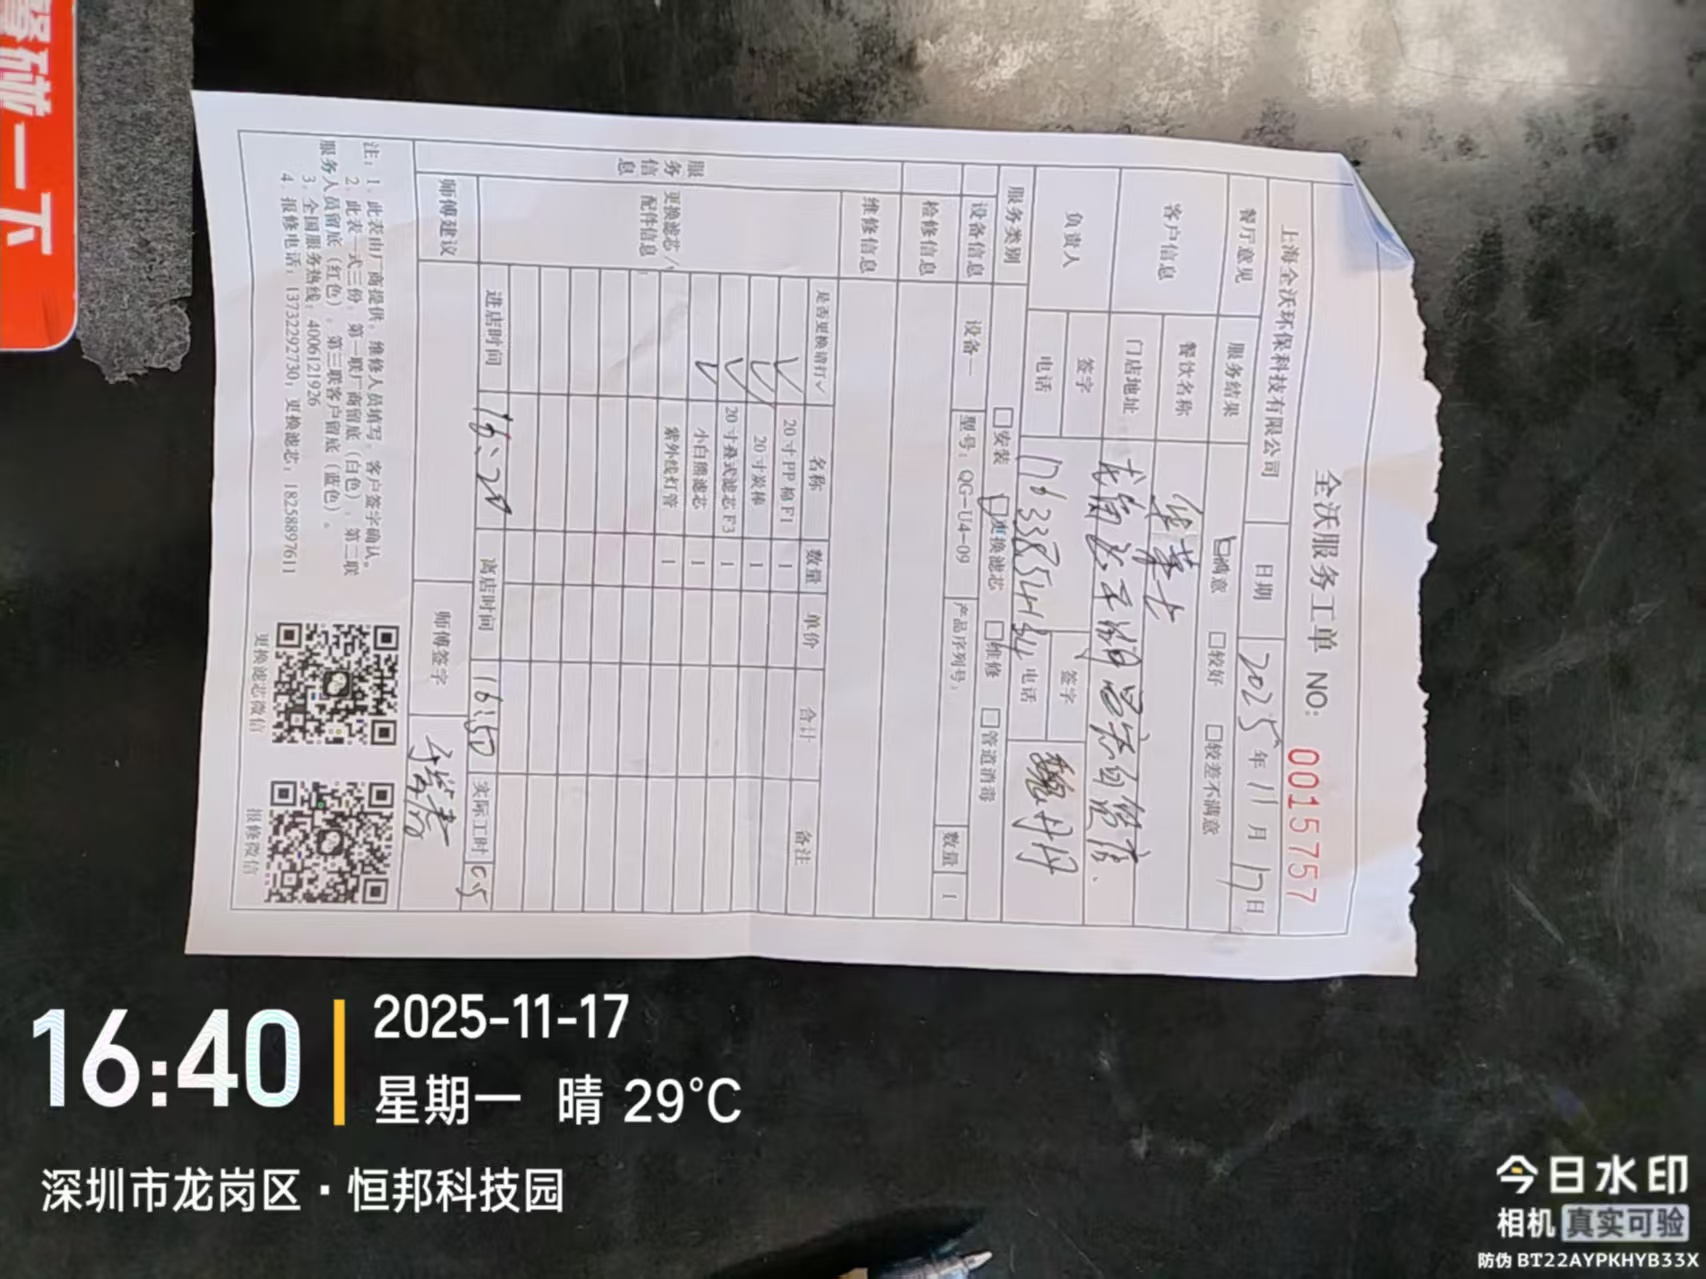 全沃服务工单 NO: 0015757
上海全沃环保科技有限公司 日期 2025年11月17日
餐厅意见 服务结果 满意 较好 较差不满意
客户信息 餐饮名称 华莱士
门店地址
负责人 签字 签字
电话 17633854134 电话
服务类别 安装 更换滤芯 维修 管道消毒
设备信息 设备一 型号: QG-U4-09 产品序列号: 数量 1
检修信息
维修信息
服务信息
更换滤芯/配件信息
是否更换请打✓ 名称 数量 单价 合计 备注
✓ 20寸PP棉F1 1
✓ 20寸炭棒 1
✓ 20寸叠式滤芯F3 1
✓ 小白熊滤芯 1
紫外线灯管 1
进店时间 16:20 离店时间 16:50 实际工时 0.5
师傅建议 师傅签字
注: 1. 此表由厂商提供, 维修人员填写, 客户签字确认。
2. 此表一式三份, 第一联厂商留底 (白色), 第二联
服务人员留底 (红色), 第三联客户留底 (蓝色)。
3. 全国服务热线: 4006121926
4. 报修电话: 13732292730, 更换滤芯: 18258897611
更换滤芯微信 报修微信
碰一下
16:40
2025-11-17
星期一 晴 29°C
深圳市龙岗区·恒邦科技园
今日水印
相机 真实可验
防伪 BT22AYPKHYB33X